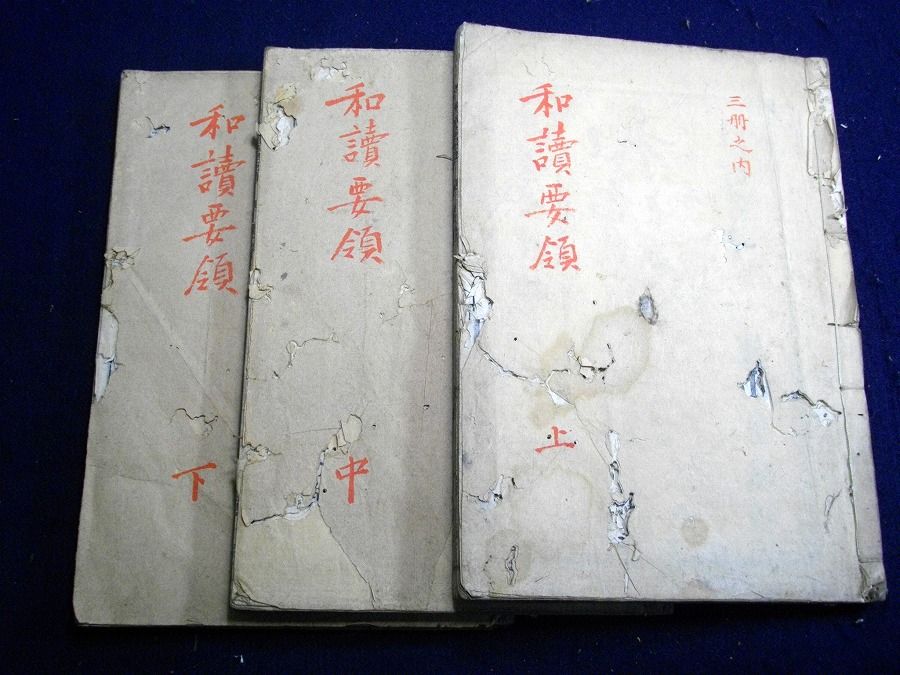 三册之内
和讀要領
上
和讀要領
中
和讀要領
下